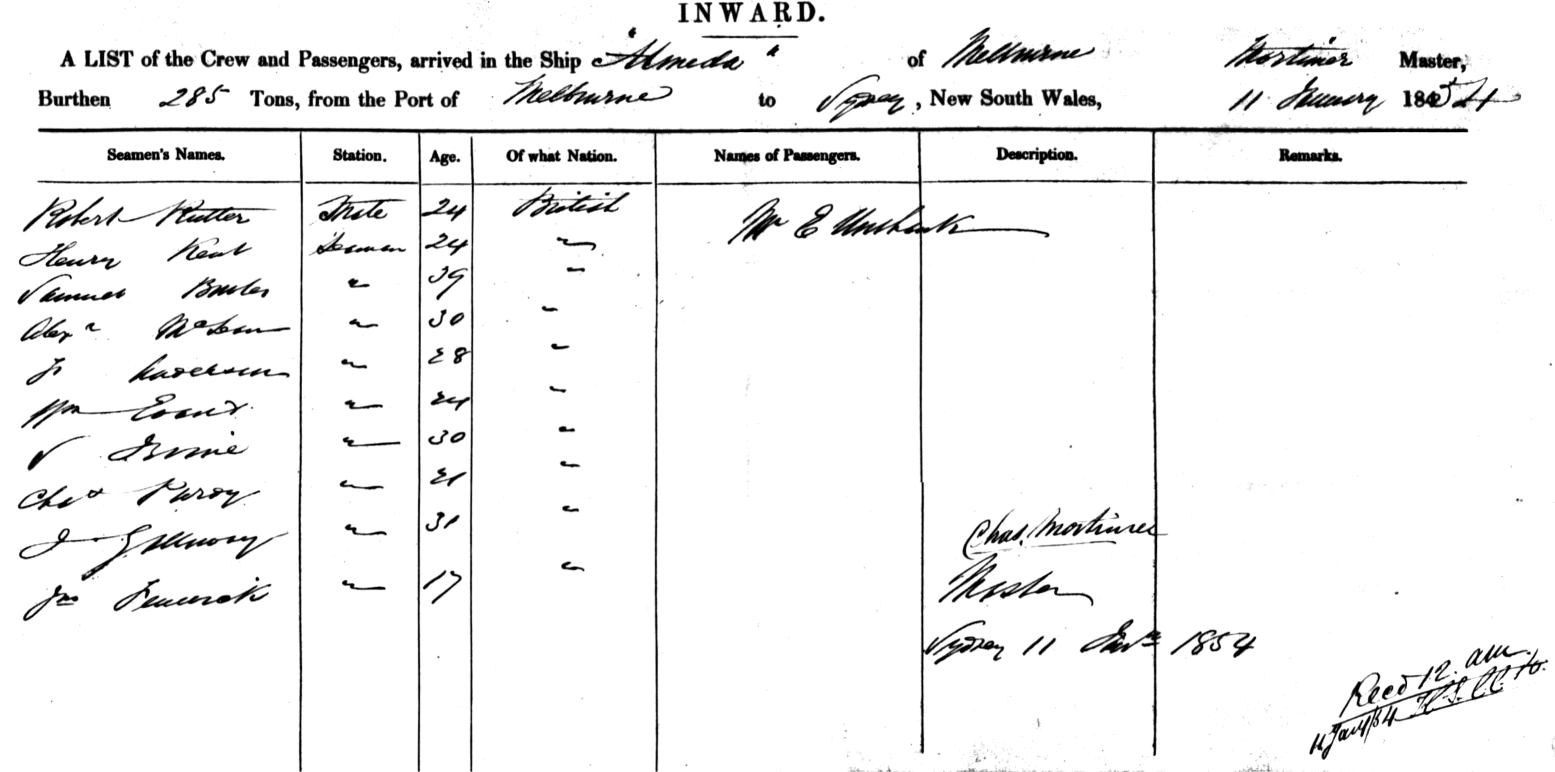 INWARD.
A LIST of the Crew and Passengers, arrived in the Ship "Almeda" of Melbourne Mortimer Master,
Burthen 285 Tons, from the Port of Melbourne to Sydney, New South Wales, 11 January 1854
Seamen's Names. Station. Age. Of what Nation. Names of Passengers. Description. Remarks.
Robert Rutter Mate 24 British Mr E
Henry Kent Seaman 24 "
Samuel 39 "
Alexr McLean " 30 "
Js Anderson " 28 "
Wm Evans " 24 "
S Irvine " 30 "
Chas Purdy " 21 "
J Galloway " 31 "
Jno Fenwick " 17 "
Chas. Mortimer
Master
Sydney 11 Jany 1854
Recd 12. am.
11 Jany/54